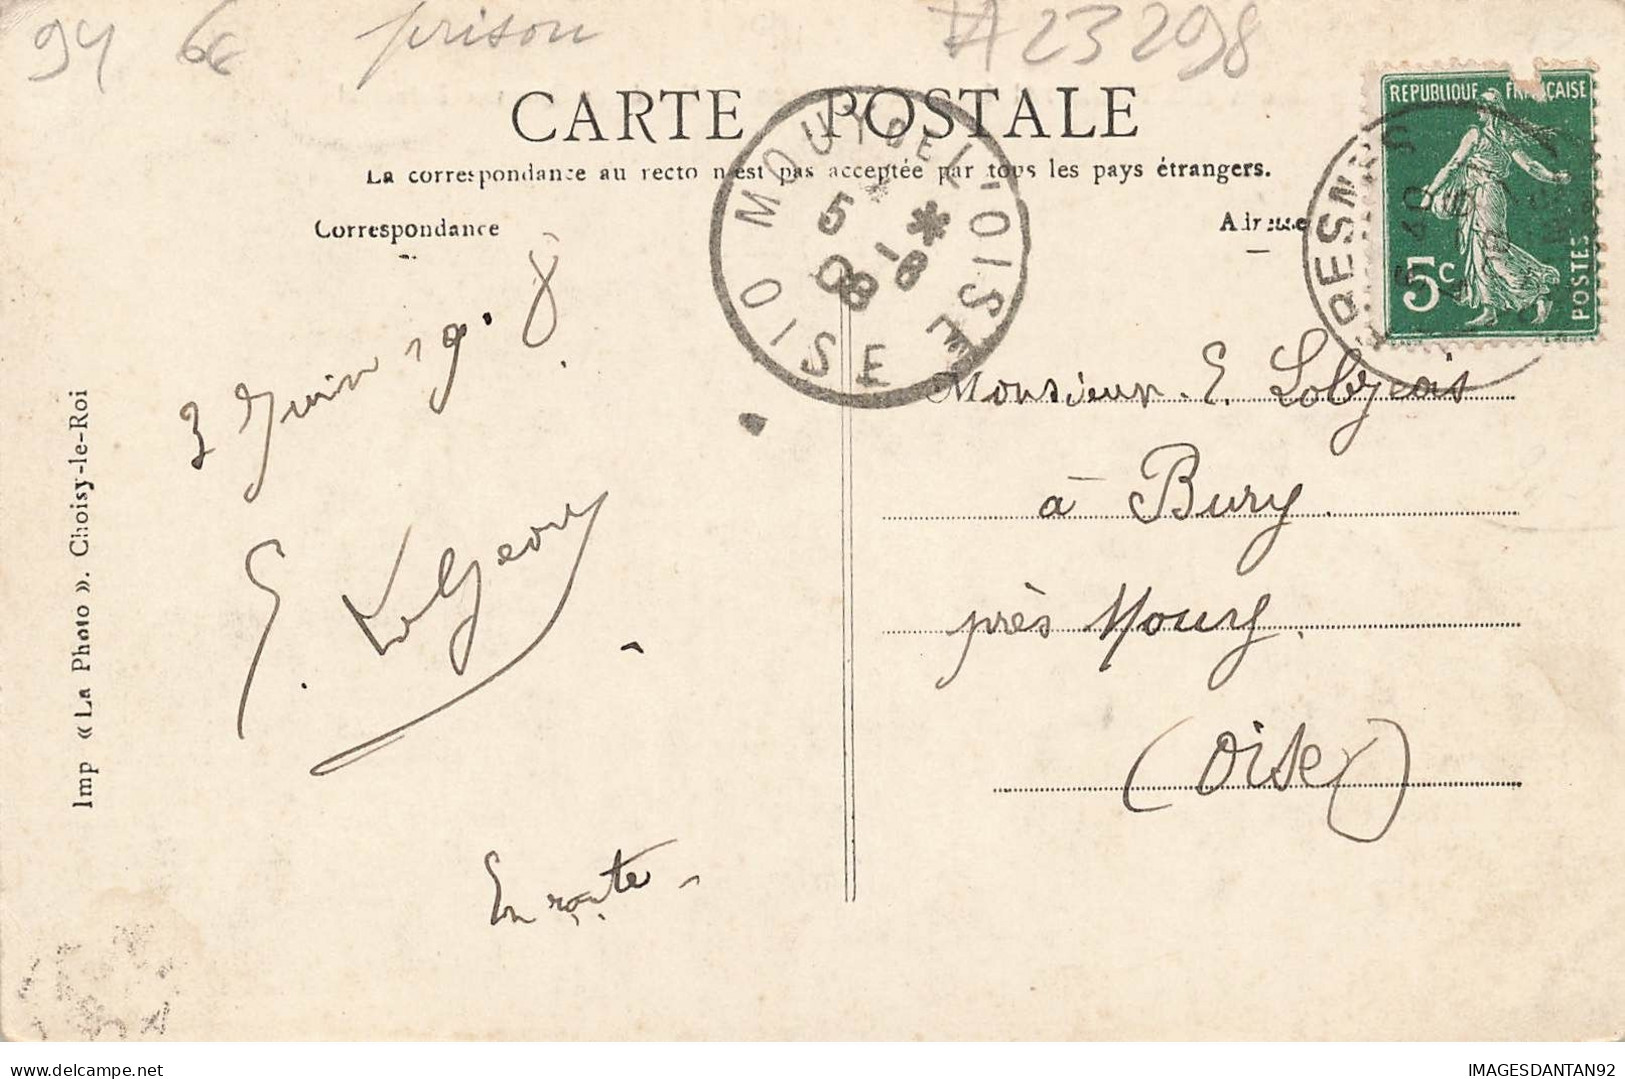 94 6€ prison #23298
CARTE POSTALE
La correspondance au recto n'est pas acceptée par tous les pays étrangers.
Correspondance
Adresse
REPUBLIQUE FRANÇAISE
5c POSTES
FRESNES
MOUY DE L'OISE
5 * -6
08
OISE
3 Juin 19.8
Monsieur. E. Lobgeois
à Bury.
près Mouy.
(Oise)
E. Lobgeois
En route
Imp « La Photo ». Choisy-le-Roi
IMAGESDANTAN92